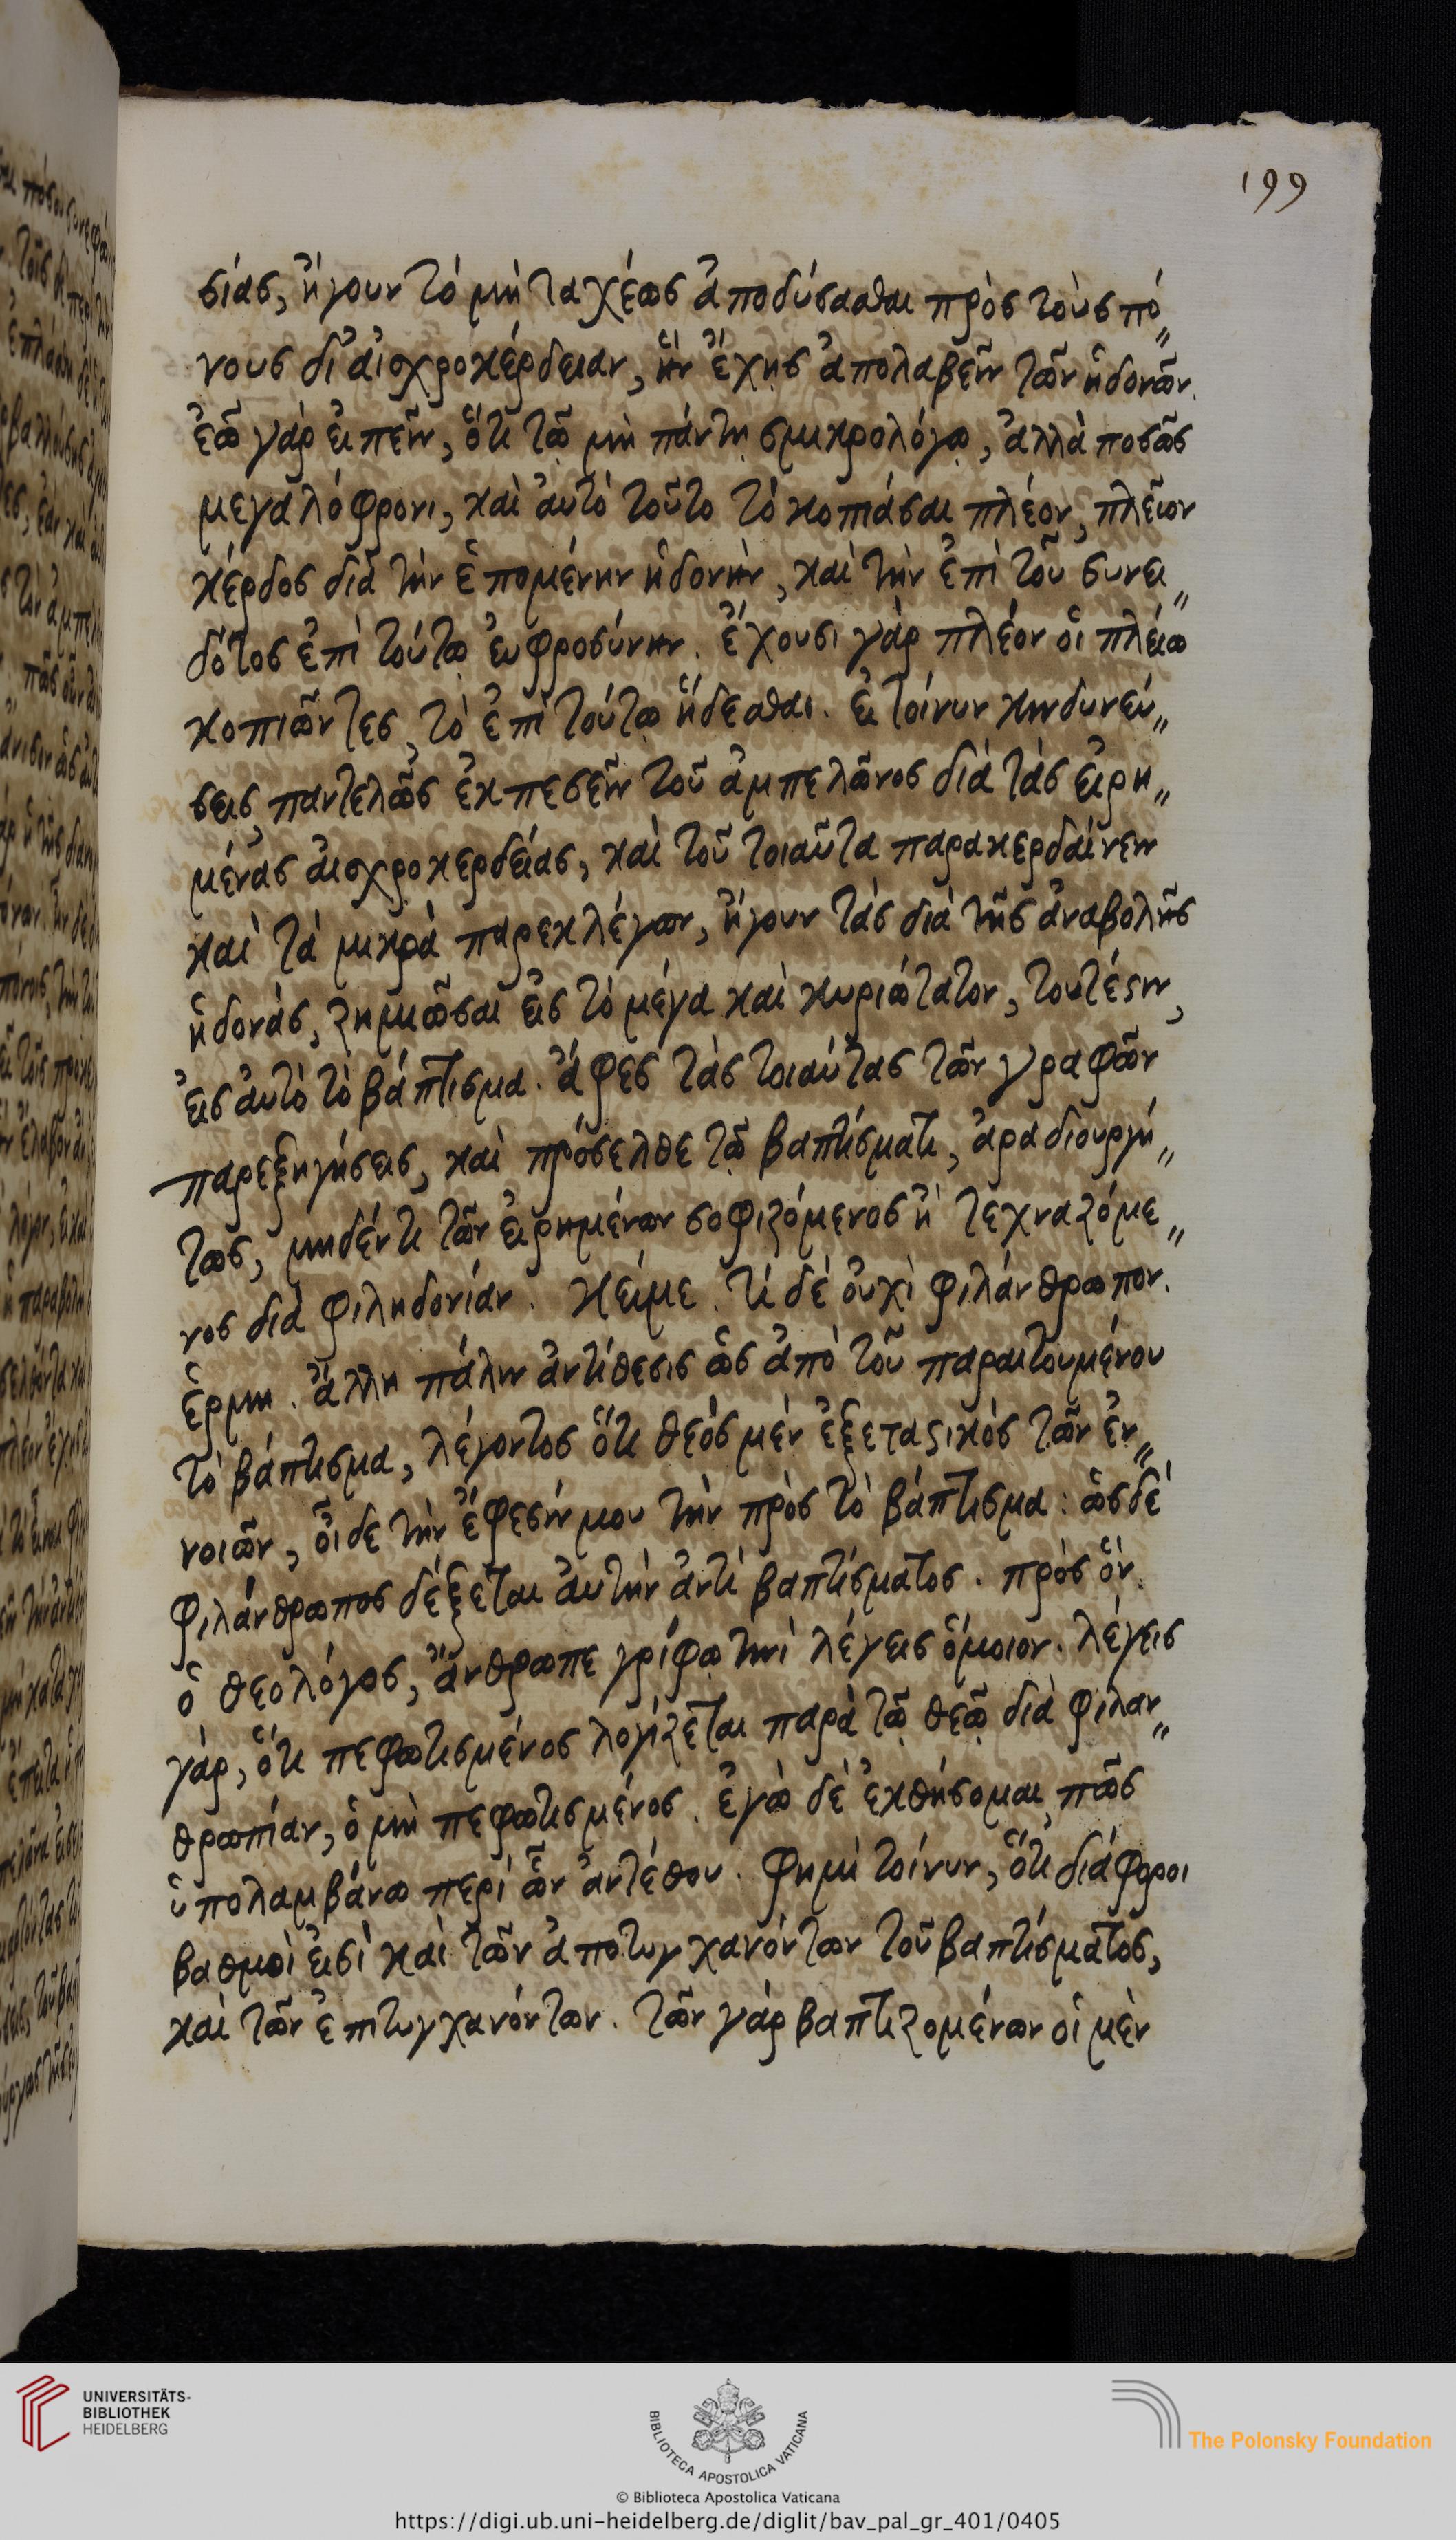 199
σίας, ἤγουν τὸ μὴ ταχέως ἀποδύσασθαι πρὸς τοὺς πό„
νους δι' αἰσχροκέρδειαν, ἣν ἔχης ἀπολαβεῖν τῶν ἡδονῶν.
ἐῶ γὰρ εἰπεῖν, ὅτι τῶ μὴ πάντη σμικρολόγω, ἀλλὰ ποσῶς
μεγαλόφρονι, καὶ αὐτὸ τοῦτο τὸ κοπιάσαι πλέον, πλεῖον
κέρδος διὰ τὴν ἑπομένην ἡδονὴν, καὶ τὴν ἐπὶ τοῦ συνει„
δότος ἐπὶ τούτω εὐφροσύνην. ἔχουσι γὰρ πλέον οἱ πλείω
κοπιῶντες, τὸ ἐπὶ τούτω ἥδεσθαι. εἰ τοίνυν κινδυνεύ„
σεις παντελῶς ἐκπεσεῖν τοῦ ἀμπελῶνος διὰ τὰς εἰρη„
μένας αἰσχροκερδείας, καὶ τοῦ τοιαῦτα παρακερδαίνειν
καὶ τὰ μικρὰ παρεκλέγων, ἤγουν τὰς διὰ τῆς ἀναβολῆς
ἡδονὰς, ζημιῶσαι εἰς τὸ μέγα καὶ κυριώτατον, τουτέστιν,
εἰς αὐτὸ τὸ βάπτισμα. ἄφες τὰς τοιαύτας τῶν γραφῶν
παρεξηγήσεις, καὶ πρόσελθε τῶ βαπτίσματι, ἀραδιουργή„
τως, μηδέν τι τῶν εἰρημένων σοφιζόμενος ἢ τεχναζόμε„
νος διὰ φιληδονίαν. κείμε. τί δὲ οὐχὶ φιλάνθρωπον.
ἑρμη. ἄλλη πάλιν ἀντίθεσις ὡς ἀπὸ τοῦ παραιτουμένου
τὸ βάπτισμα, λέγοντος ὅτι θεὸς μὲν ἐξεταστικὸς τῶν ἐν„
νοιῶν, οἶδε τὴν ἔφεσίν μου τὴν πρὸς τὸ βάπτισμα: ὡς δὲ
φιλάνθρωπος δέξεται αὐτὴν ἀντὶ βαπτίσματος. πρὸς ὃν
ὁ θεολόγος, ἄνθρωπε γρίφω τινὶ λέγεις ὅμοιον. λέγεις
γὰρ, ὅτι πεφωτισμένος λογίζεται παρὰ τῶ θεῶ διὰ φιλαν„
θρωπίαν, ὁ μὴ πεφωτισμένος. ἐγὼ δὲ ἐκθήσομαι, πῶς
ὑπολαμβάνω περὶ ὧν ἀντέθου. φημὶ τοίνυν, ὅτι διάφοροι
βαθμοὶ εἰσὶ καὶ τῶν ἀποτυγχανόντων τοῦ βαπτίσματος,
καὶ τῶν ἐπιτυγχανόντων. τῶν γὰρ βαπτιζομένων οἱ μὲν
UNIVERSITÄTS-
BIBLIOTHEK
HEIDELBERG
BIBLIOTECA APOSTOLICA VATICANA
© Biblioteca Apostolica Vaticana
The Polonsky Foundation
https://digi.ub.uni-heidelberg.de/diglit/bav_pal_gr_401/0405